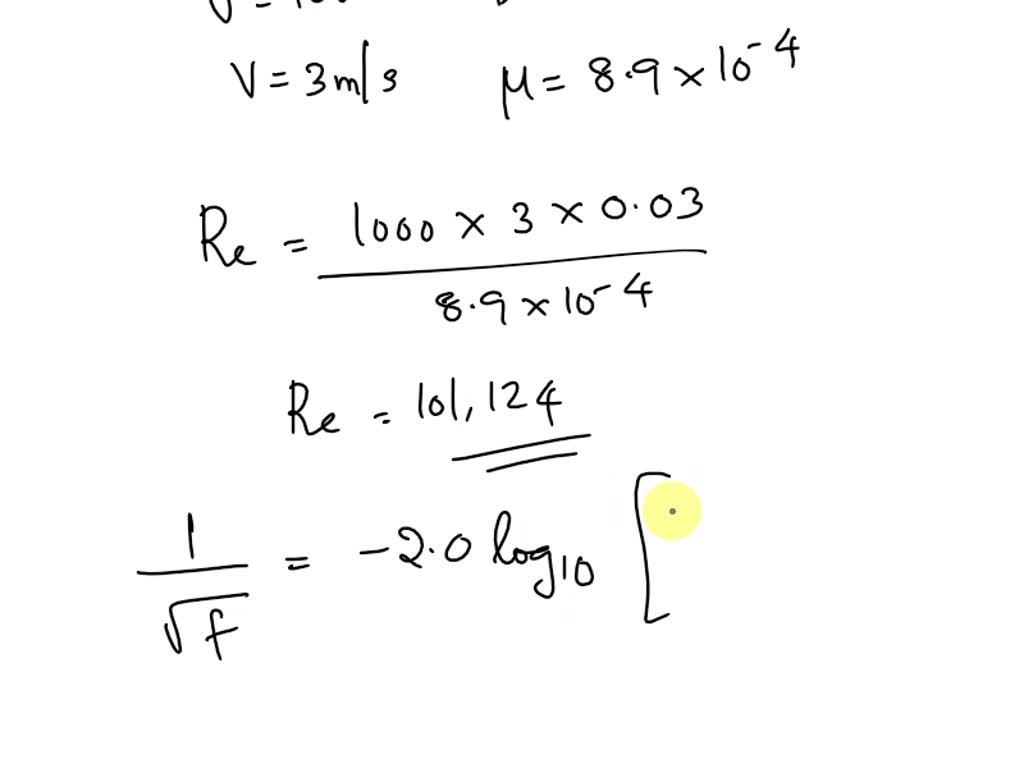 V = 3 m/s μ = 8.9 × 10⁻⁴
Re = 1000 × 3 × 0.03
8.9 × 10⁻⁴
Re = 101,124
1 = -2.0 log₁₀ [
√f